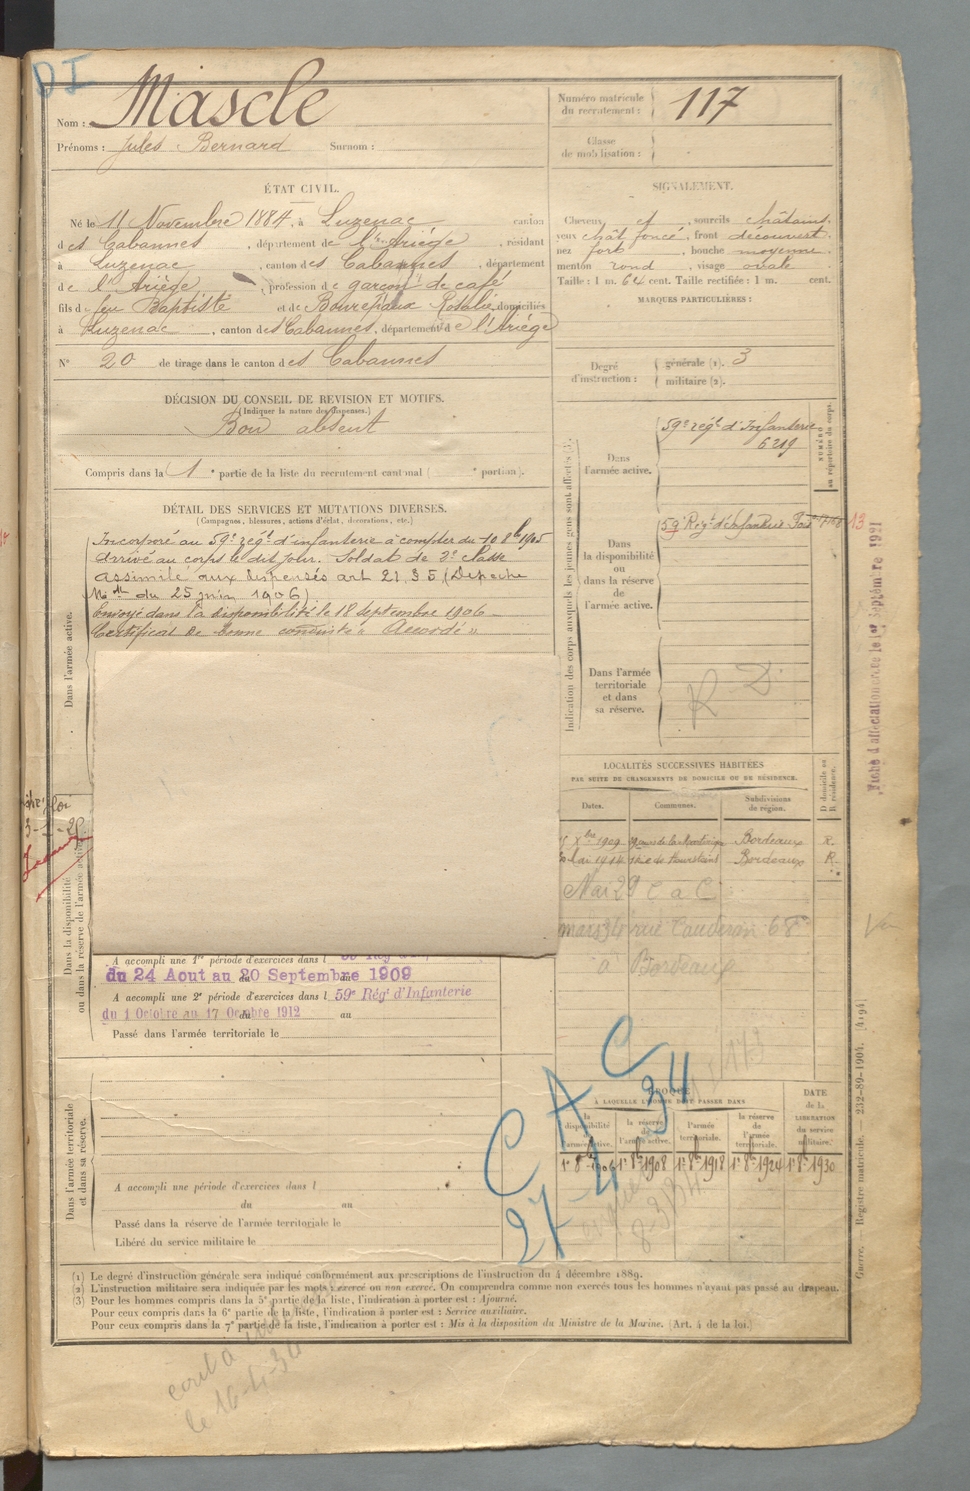 DI
Nom : Mascle
Prénoms : Jules Bernard Surnom :
Numéro matricule du recrutement : 117
Classe de mobilisation :
ÉTAT CIVIL.
Né le 11 Novembre 1884, à Luzenac canton
des Cabannes, département de l'Ariège, résidant
à Luzenac, canton des Cabannes, département
de l'Ariège, profession de garçon de café
fils de feu Baptiste et de Bourepaux Rosalie domiciliés
à Luzenac, canton des Cabannes, département de l'Ariège
N° 20 de tirage dans le canton des Cabannes
SIGNALEMENT.
Cheveux et, sourcils châtains.
yeux chât foncé, front découvert.
nez fort, bouche moyenne.
menton rond, visage ovale
Taille : 1 m. 64 cent. Taille rectifiée : 1 m. cent.
MARQUES PARTICULIÈRES :
Degré d'instruction : générale (1). 3
militaire (2).
DÉCISION DU CONSEIL DE REVISION ET MOTIFS.
(Indiquer la nature des dispenses.)
Bon absent
Compris dans la 1e partie de la liste du recrutement cantonal ( e portion).
DÉTAIL DES SERVICES ET MUTATIONS DIVERSES.
(Campagnes, blessures, actions d'éclat, décorations, etc.)
Incorporé au 59e régt d'infanterie à compter du 10 8bre 1905
arrivé au corps le dit jour. Soldat de 2e classe
assimilé aux dispensés art 21,35 (Dépêche
Mlle du 25 juin 1906)
Envoyé dans la disponibilité le 18 septembre 1906
Certificat de bonne conduite "Accordé"
Dans l'armée active.
Dans la disponibilité ou dans la réserve de l'armée active
A accompli une 1re période d'exercices dans l
du 24 Aout au 20 Septembre 1909
A accompli une 2e période d'exercices dans l 59e Régt d'Infanterie
du 1 Octobre au 17 Octobre 1912 au
Passé dans l'armée territoriale le
Dans l'armée territoriale et dans sa réserve.
A accompli une période d'exercices dans l
du au
Passé dans la réserve de l'armée territoriale le
Libéré du service militaire le
Indication des corps auxquels les jeunes gens sont affectés (3).
NUMÉRO au répertoire du corps.
Dans l'armée active.
59e régt d'Infanterie
6219
Dans la disponibilité ou dans la réserve de l'armée active.
59e Régt d'Infanterie
13
Dans l'armée territoriale et dans sa réserve.
R D
Fiche d'affectation créée le 1er Septembre 1921
LOCALITÉS SUCCESSIVES HABITÉES
PAR SUITE DE CHANGEMENTS DE DOMICILE OU DE RÉSIDENCE.
Dates. Communes. Subdivisions de région. D domicile ou R résidence.
Xbre 1909 Bordeaux R.
Mai 1914 Bordeaux R.
Mai 29 C a C
mars 34 rue Cauderan 68
à Bordeaux
C A C
34
27-4
ÉPOQUE
À LAQUELLE L'HOMME DOIT PASSER DANS
la disponibilité de l'armée active. la réserve de l'armée active. l'armée territoriale. la réserve de l'armée territoriale. DATE de la LIBÉRATION du service militaire.
1er 8bre 1906 1er 8bre 1908 1er 8bre 1918 1er 8bre 1924 1er 8bre 1930
(1) Le degré d'instruction générale sera indiqué conformément aux prescriptions de l'instruction du 4 décembre 1889.
(2) L'instruction militaire sera indiquée par les mots : exercé ou non exercé. On comprendra comme non exercés tous les hommes n'ayant pas passé au drapeau.
(3) Pour les hommes compris dans la 5e partie de la liste, l'indication à porter est : Ajourné.
Pour ceux compris dans la 6e partie de la liste, l'indication à porter est : Service auxiliaire.
Pour ceux compris dans la 7e partie de la liste, l'indication à porter est : Mis à la disposition du Ministre de la Marine. (Art. 4 de la loi.)
Guerre. — Registre matricule. — 232-89-1904. [4194]
le 16-4-30